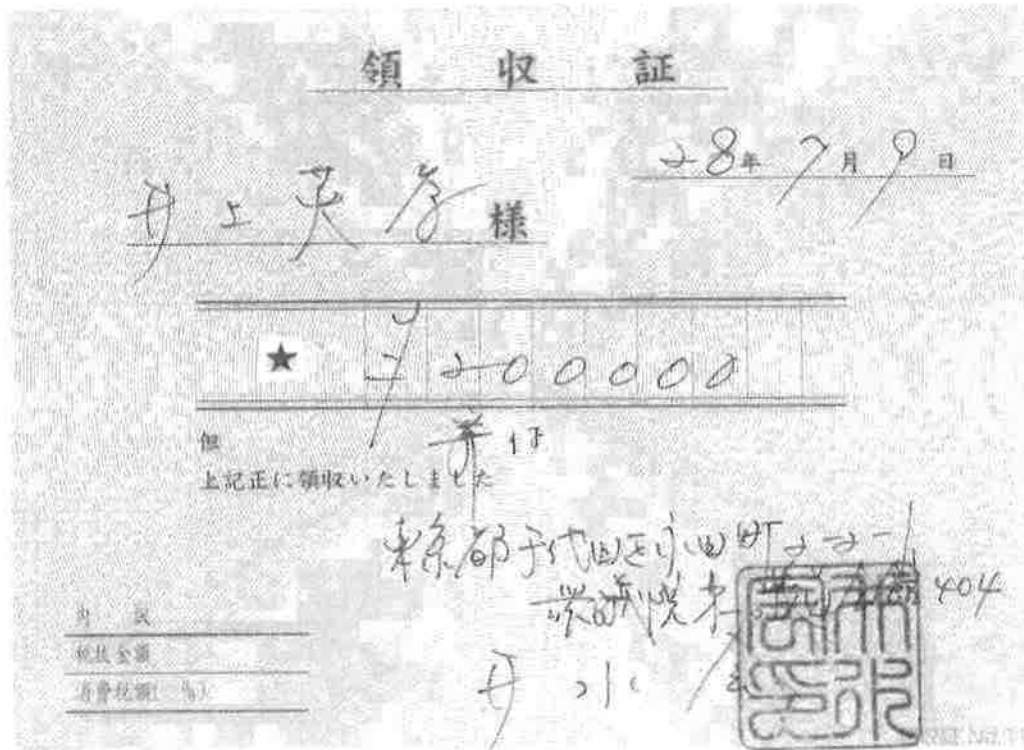 領 収 証
28年 7月 9日
井上英孝 様
★ ¥200000
但 寄付
上記正に領収いたしました
東京都千代田区永田町2-2-1
衆議院第一議員会館404
井上
内 訳
税抜金額
消費税額( %)